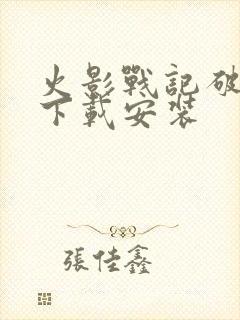 火影戰記破
下載安裝
張佳鑫